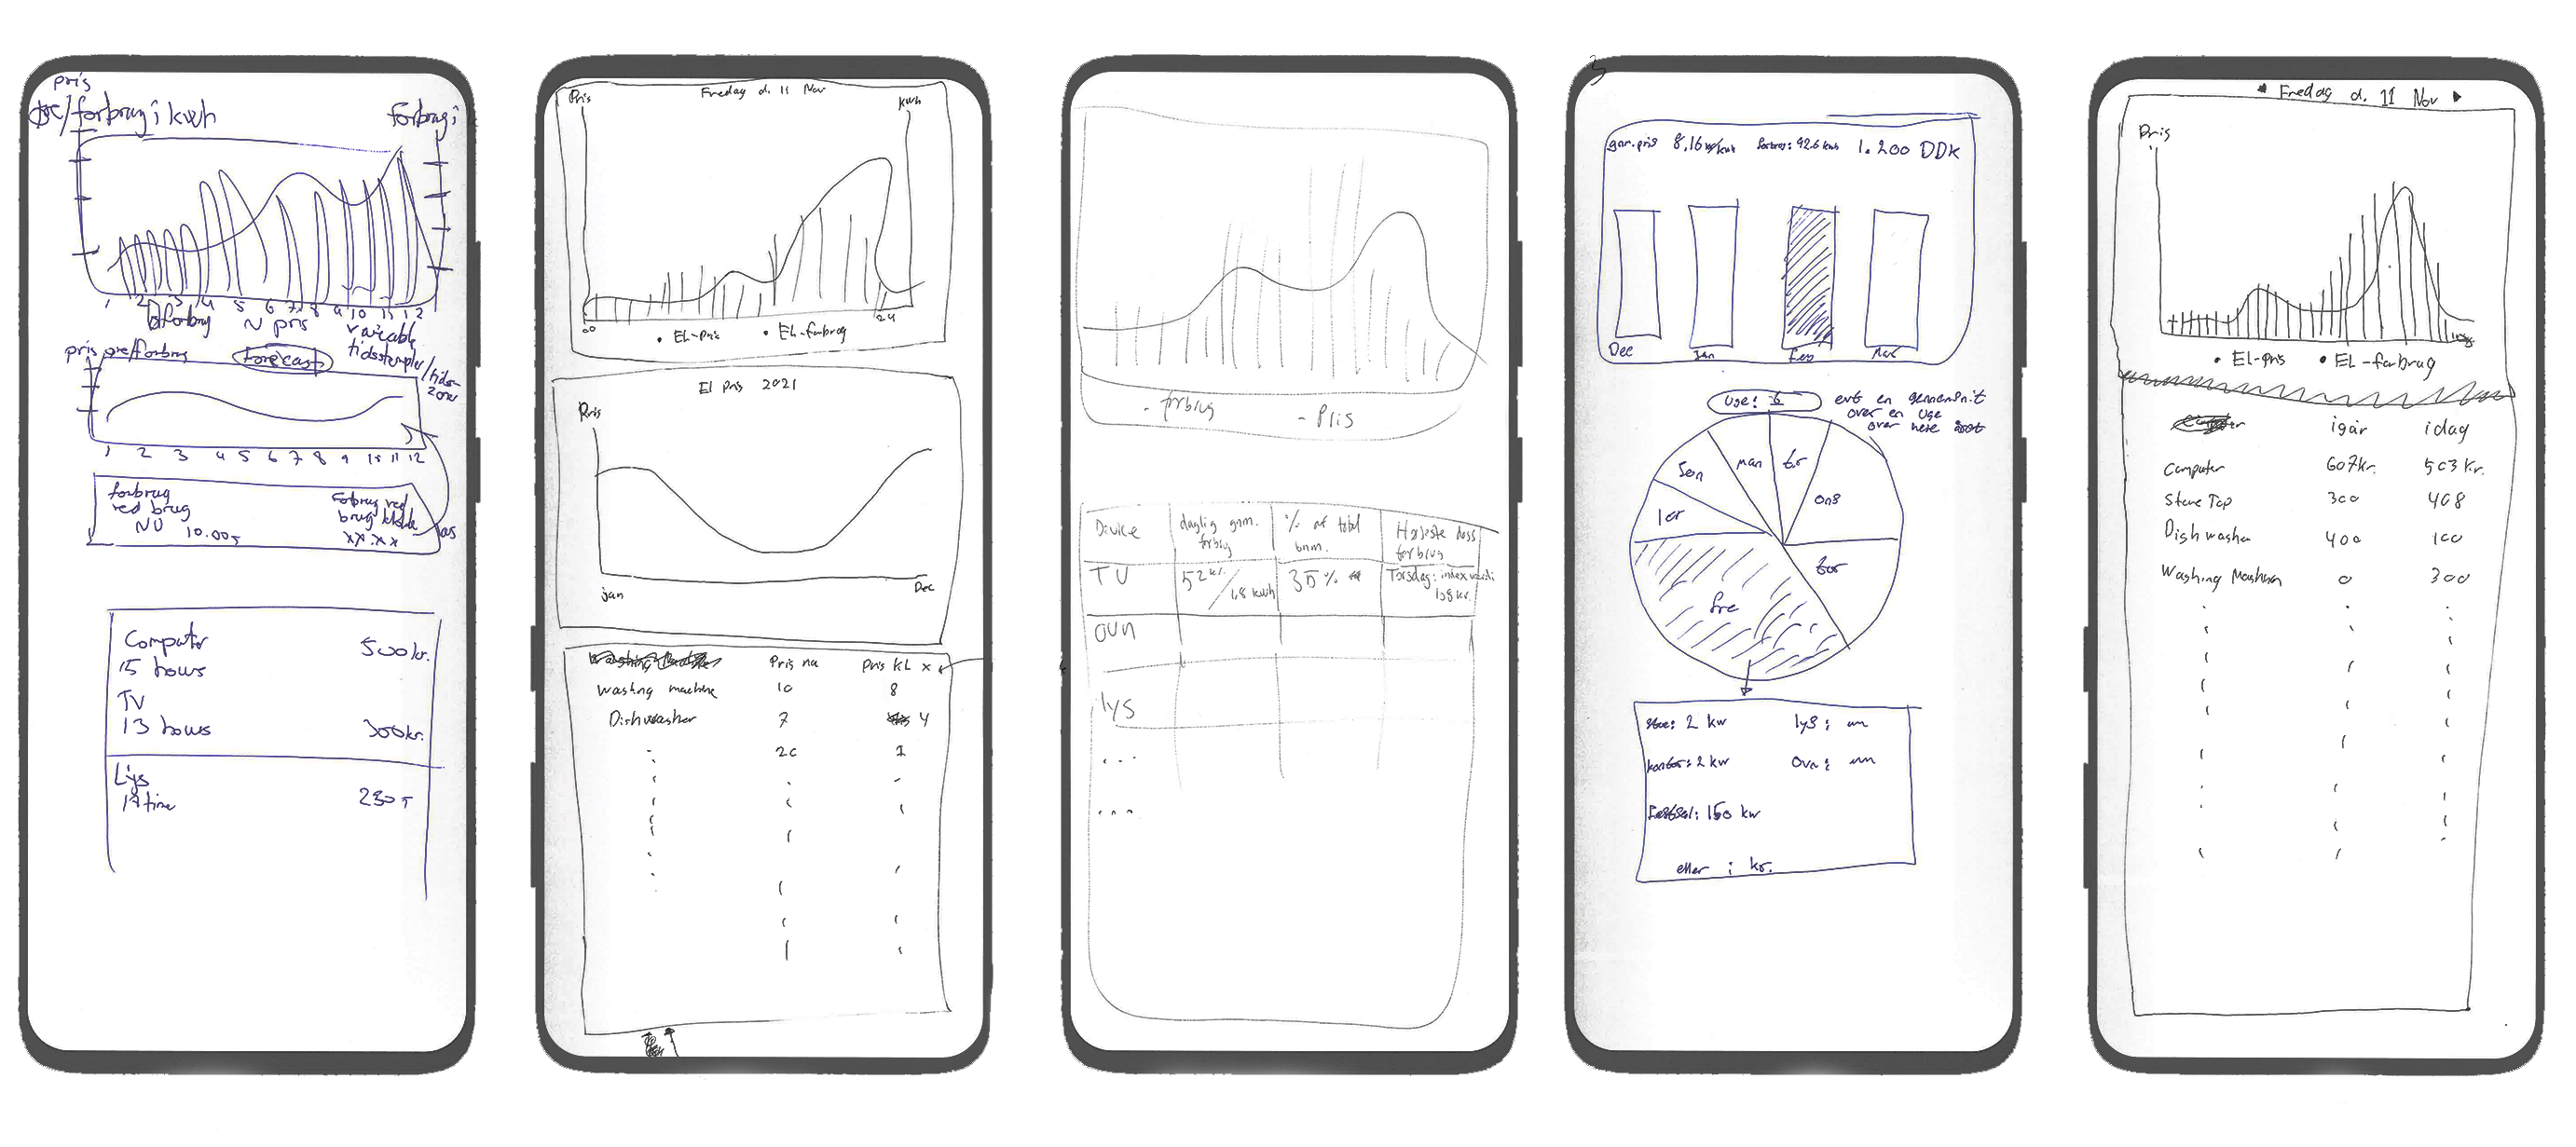 pris
/forbrug i kwh
Forbrug i
1 2 3 4 5 6 7 8 9 10 11 12
forbrug
N pris
variable
tidsstempler/tids-
zoner
pris pre/forbrug
Forecast
1 2 3 4 5 6 7 8 9 10 11 12
forbrug
red brug
NU 10.00
Forbrug ved
brug
xx.xx
Computer
15 hours
500kr.
TV
13 hours
300kr.
Lys
timer
230
Fredag d. 11 Nov
Pris
kwh
00
24
• EL-pris • EL-forbrug
El pris 2021
Pris
jan
Dec
Pris nu
Pris kl x
Washing machine 10 8
Dishwasher 7 4
20 1
- forbrug
- Pris
Device
daglig gnm.
forbrug
% af total
gnm.
Højeste
forbrug
TV
52 kr.
/1,8 kwh
35 %
Torsdag: index værdi
198 kr.
ovn
lys
...
...
gnm.pris 8,16 kr/kwh forbrug: 926 kwh 1.200 DDK
Dec
Jan
Feb
Mar
uge: 5
evt en gennemsnit
over en uge
over hele året
søn
man
tir
lør
ons
tor
fre
stue: 2 kw
lys:
kontor: 2 kw
ovn:
150 kw
eller i kr.
Fredag d. 11 Nov
Pris
• EL-pris • EL-forbrug
igår
idag
Computer 607kr. 503 kr.
Stove Top 300 408
Dish washer 400 100
Washing 0 300